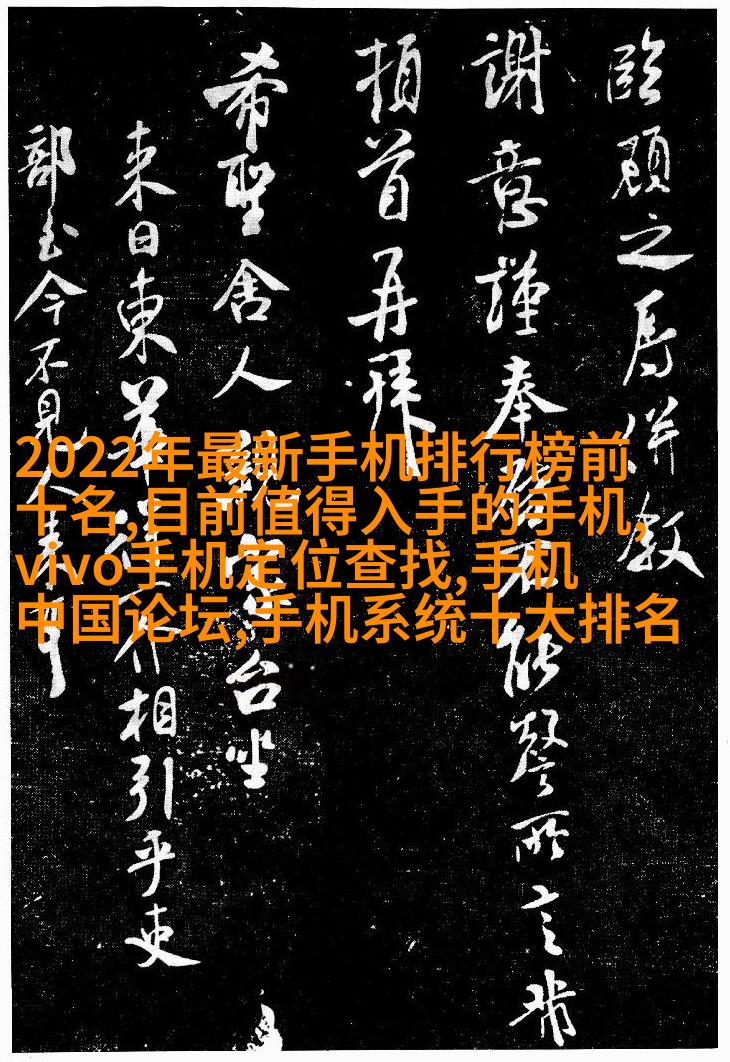 臨顧之併敘
謝意謹奉不能所言
頓首再拜
希聖舍人台坐
来日東相引乎吏
部至今不見
2022年最新手机排行榜前
十名,目前值得入手的手机,
vivo手机定位查找,手机
中国论坛,手机系统十大排名